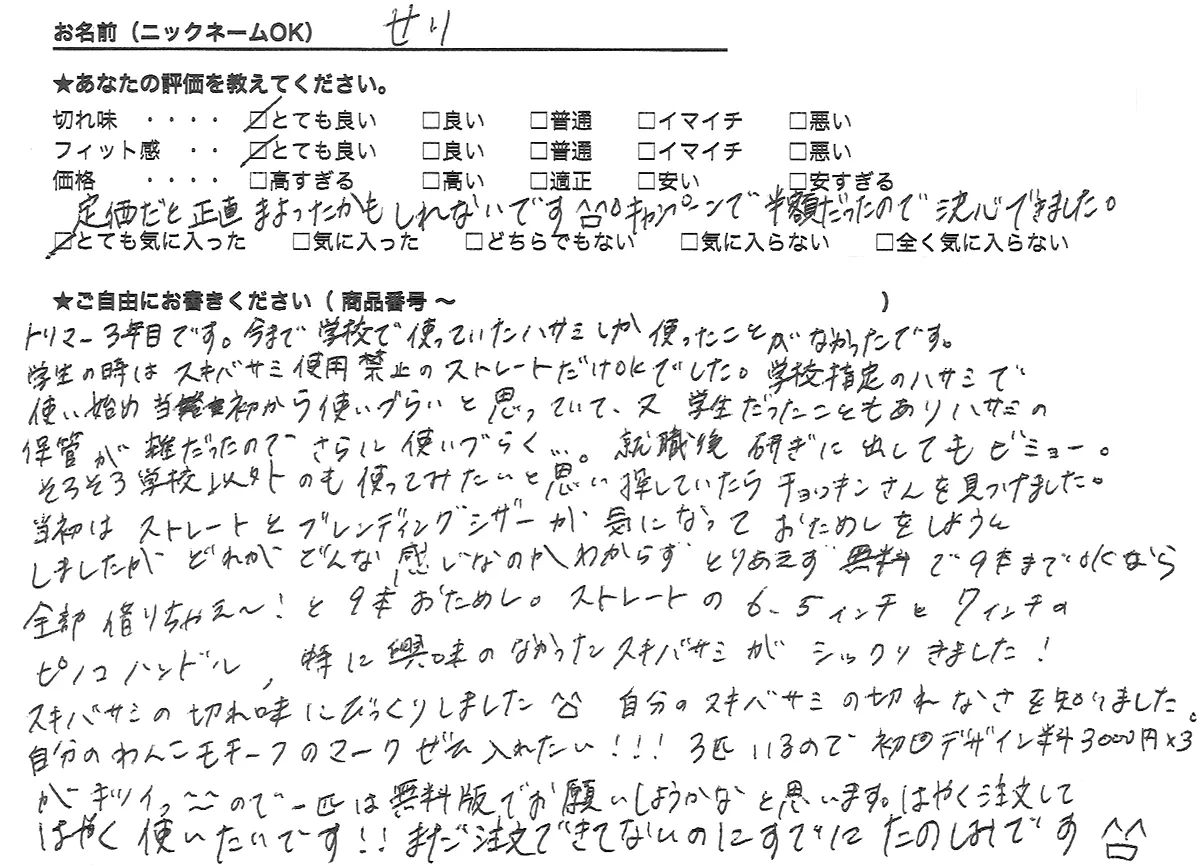 お名前（ニックネームOK） せり
★あなたの評価を教えてください。
切れ味 ・・・・ ☑とても良い □良い □普通 □イマイチ □悪い
フィット感 ・・ ☑とても良い □良い □普通 □イマイチ □悪い
価格 ・・・・ □高すぎる □高い □適正 □安い □安すぎる
定価だと正直まよったかもしれないです^^。キャンペーンで半額だったので決心できました。
☑とても気に入った □気に入った □どちらでもない □気に入らない □全く気に入らない
★ご自由にお書きください（ 商品番号 ～ ）
トリマー3年目です。今まで学校で使っていたハサミしか使ったことがなかったです。
学生の時はスキバサミ使用禁止のストレートだけOKでした。学校指定のハサミで
使い始め当初から使いづらいと思っていて、又学生だったこともありハサミの
保管が雑だったのでさらに使いづらく…。就職後研ぎに出してもビミョー。
そろそろ学校以外のも使ってみたいと思い探していたらチョッキンさんを見つけました。
当初はストレートとブレンディングシザーが気になっておためしをしようと
しましたがどれがどんな感じなのかわからずとりあえず無料で9本までOKなら
全部借りちゃえ～！と9本おためし。ストレートの6.5インチと7インチの
ピノコハンドル，特に興味のなかったスキバサミがシックリきました！
スキバサミの切れ味にびっくりしました^^ 自分のスキバサミの切れなさを知りました。
自分のわんこモチーフのマークぜひ入れたい！！！3匹いるので初回デザイン料3000円×3
がキツイっ^^ので一匹は無料版でお願いしようかなと思います。はやく注文して
はやく使いたいです！！まだ注文できてないのにすでにたのしみです^^